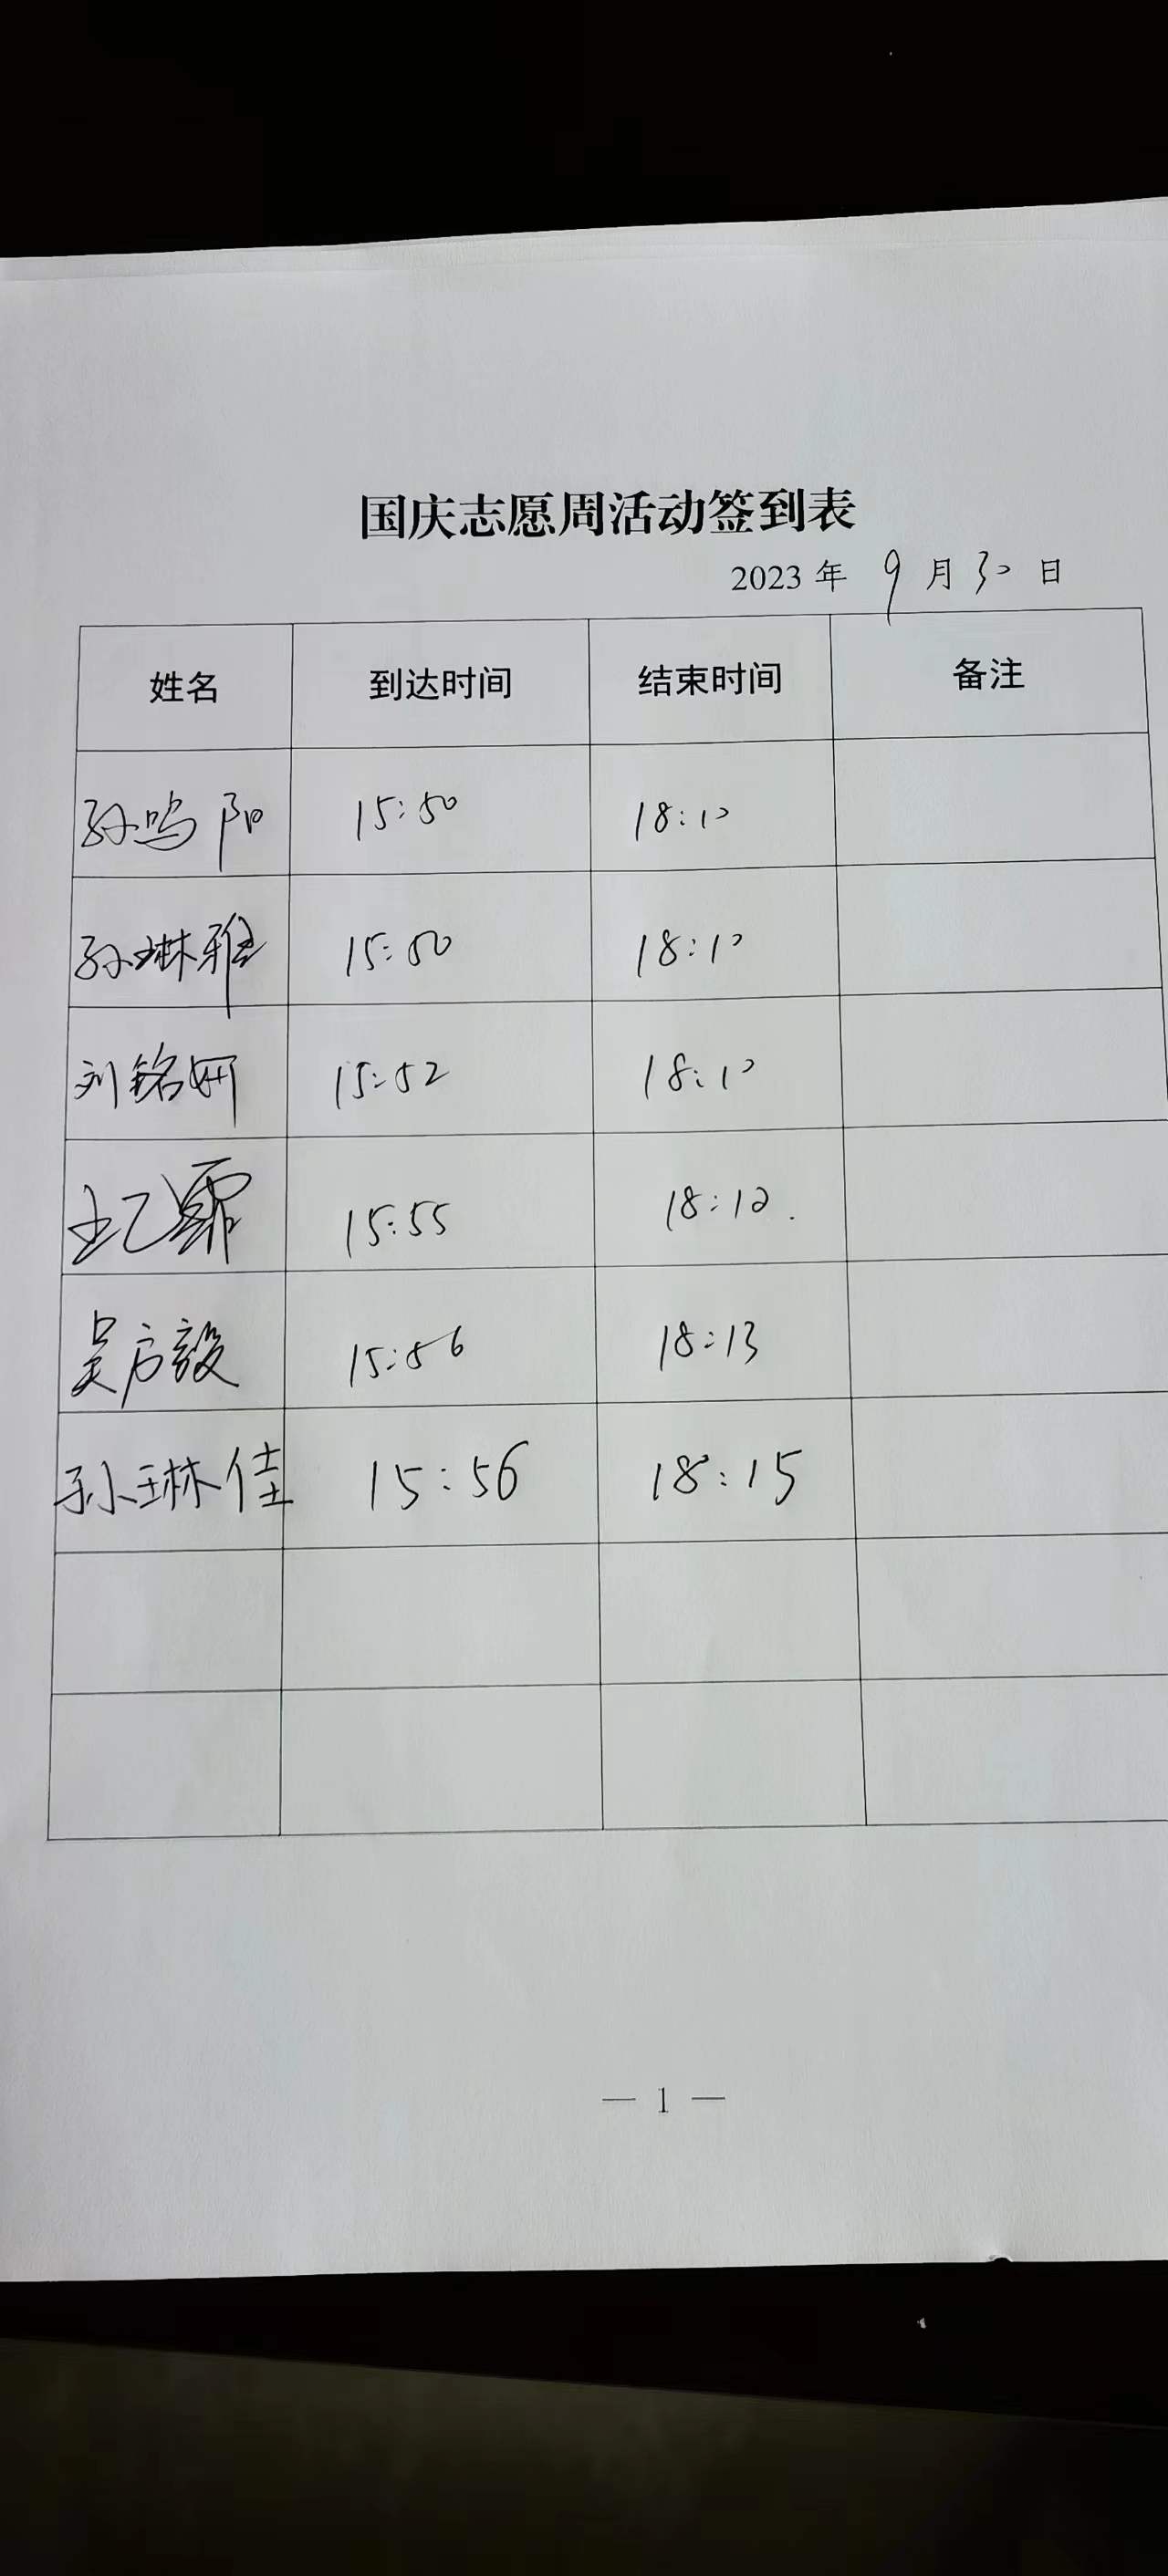 国庆志愿周活动签到表
2023 年 9 月 30 日
姓名 到达时间 结束时间 备注
孙鸣阳 15:50 18:10
孙琳雅 15:50 18:10
刘铭妍 15:52 18:10
王乙霏 15:55 18:12.
吴方毅 15:56 18:13
孙琳佳 15:56 18:15
— 1 —